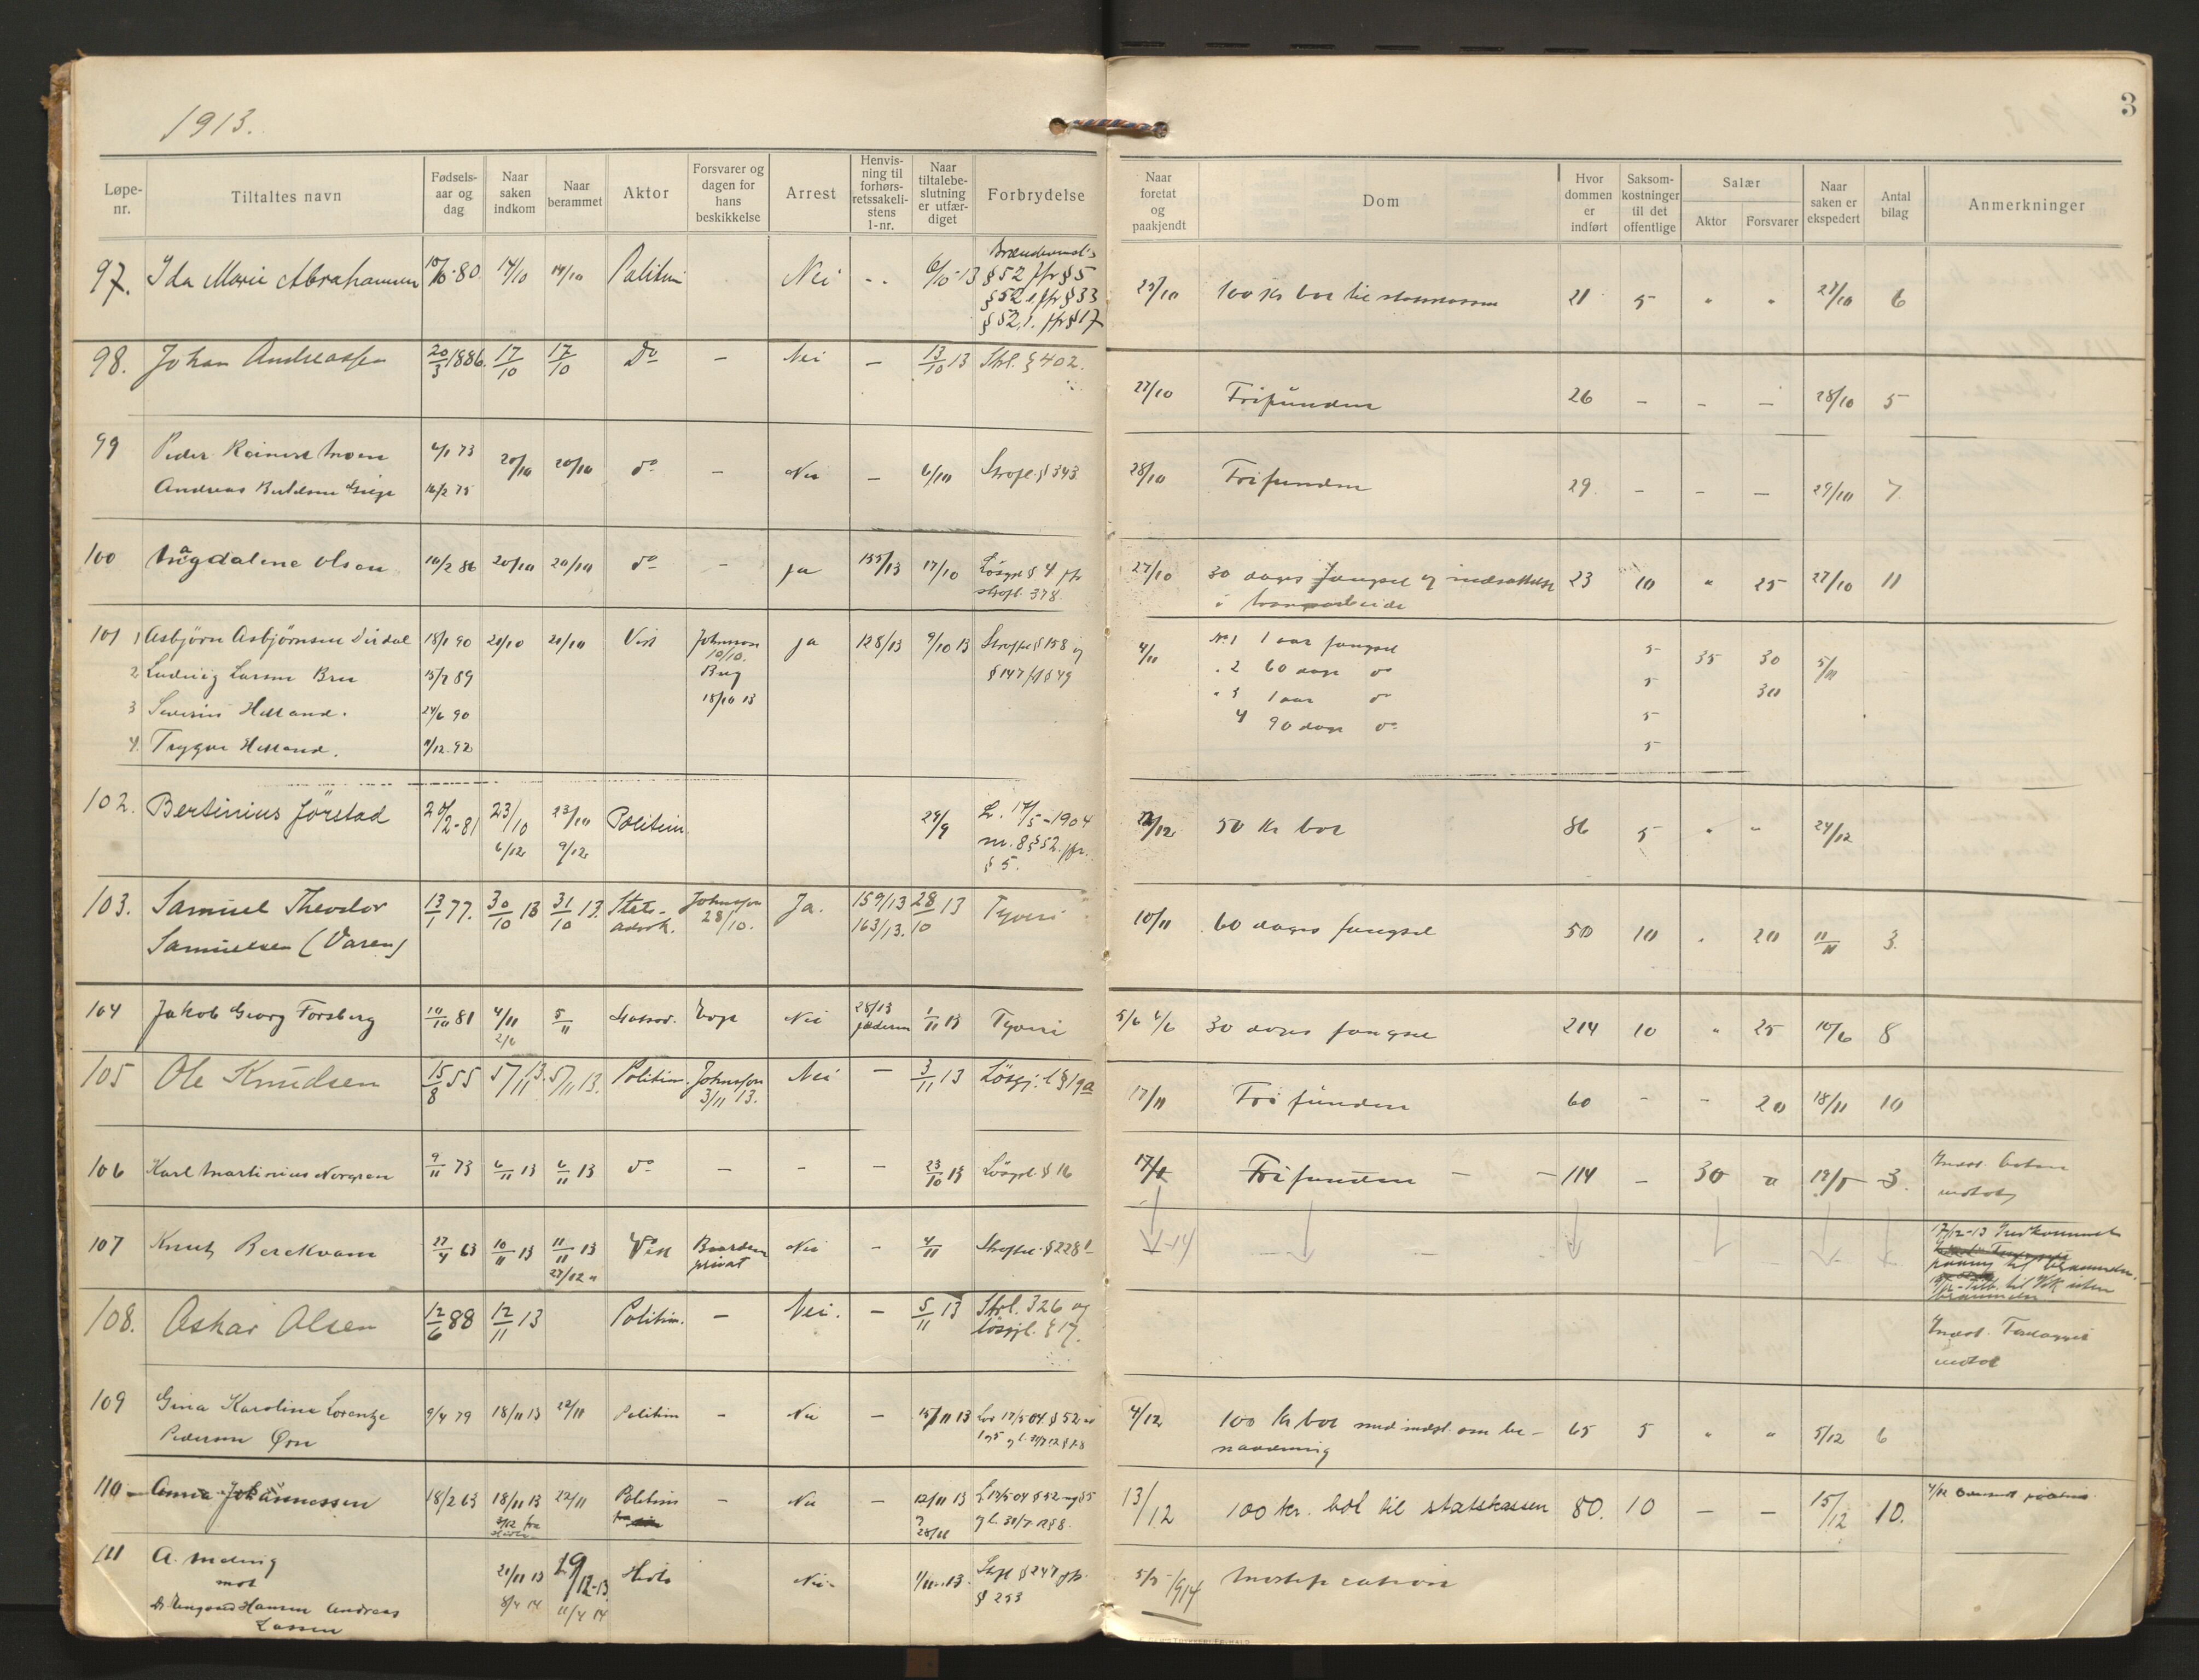 1913.
3
Løpe-nr.
Tiltaltes navn
Fødsels-aar og dag
Naar saken indkom
Naar berammet
Aktor
Forsvarer og dagen for hans beskikkelse
Arrest
Henvis-ning til forhørs-retssakeli-stens l-nr.
Naar tiltalebe-slutning er utfær-diget
Forbrydelse
Naar foretat og paakjendt
Dom
Hvor dommen er indført
Saksom-kostninger til det offentlige
Salær
Aktor
Forsvarer
Naar saken er ekspedert
Antal bilag
Anmerkninger
97. Ida Marie Abrahamsen 10/10-80 14/10 14/10 Politim Nei 6/10-13 Brændevinsl's
§ 52 jfr § 5
§ 52 e jfr § 33
§ 52,1. jfr § 17
23/10 100 Kr bot til statskassen 21 5 " " 27/10 6
98. Johan Andreassen 20/3 1886. 17/10 17/10 Do – Nei – 13/10 13 Strl. § 402.
27/10 Frifunden 26 – – – 28/10 5
99 Peder Reinert Moen 4/1 73 20/10 20/10 do – Nei – 6/10 Strafl. § 343
Andreas Bertelsen 16/2 75
28/10 Frifunden 29 – – – 29/10 7
100 Magdalene Olsen 10/2 86 20/10 20/10 do – ja 155/13 17/10 Løsgl § 4 jfr
strafl. 378.
27/10 30 dages fængsel og indsættelse 23 10 " 25 27/10 11
i tvangsarbeide
101 1 Asbjørn Asbjørnsen Dirdal 18/1 90 20/10 20/10 Vist Johnsson 10/10. ja 128/13 9/10 13 Straffel § 158 og
2 Ludvig Larsen Bru 15/7 89 Bug 18/10 13 § 147 jf § 49
3 Severin Helland. 24/6 90
4. Trygve Helland. 9/12.92
4/11 No 1 1 aar fængsel 5 35 30 5/11
" 2 60 dage do 5 30
" 3 1 aar do 5
4 90 dage do 5
102. Bertinius Jörstad 20/2-81 23/10 23/10 Politim. 29/9 L. 17/5-1904
6/12 9/12 nr. 8 § 52. jfr.
§ 5.
22/12 50 Kr bot 86 5 " " 24/12
103. Samuel Theodor 13/1 77. 30/10 13 31/10 13. Stats- Johnsson Ja. 159/13 28/10 13 Tyveri
Samuelsen (Varen) advok. 28/10. 163/13.
10/11 60 dages fængsel 50 10 " 20 11/11 3
104 Jakob Georg Forsberg 10/10 81 4/11 5/11 Statsad. Nei 28/13 1/11 13 Tyveri
2/6 Jæderen
5/6 6/6 30 dages fængsel 214 10 " 25 10/6 8
105 Ole Knudsen 15/8 55 5/11 13. 5/11 13. Politim. Johnsson Nei – 3/11 13 Løsgj. l § 19a
3/11 13.
17/11 Frifunden 60 – – 20 18/11 10
106 Karl Martinius Norgren 9/11 73 6/11 13 6/11 13 do – – – 23/10 13 Løsgl § 16
17/ Frifunden – – 114 – 30 19/5 3. Indst. boten
mottat
107 Knut Berekvam 27/4 63 10/11 13 11/11 13 Vist Baardsen Nei – 4/11 Straffel. § 228
27/12 " privat
17/12-13 Indkommet
til
108. Oskar Olsen 12/6 88 12/11 13 Politim. – Nei. – 5/11 13 Strl. 326 og
løsgjl. § 17.
Indst. Forelægget
mottat
109 Gina Karoline Lorentze 9/4 79 18/11 13 22/11 Politim – Nei – 15/11 13 Lov 17/5 04 § 52
Pedersen Ørn
4/12 100 kr bot med indst. om be- 65 5 " " 5/12 6
naadning
110 Anna Johannessen 18/2 63 18/11 13 22/11 Politim – Nei – 12/11 13 L 17/5 04 § 52 og § 5
28/11
13/12 100 kr. bot til statskassen 80. 10 – – 15/12 10.
111 A. Meling 21/11 13 19/12-13 Nei 1/11.13. Strfl § 247 jfr.
mot 8/4 14 11/4 14 § 253
Hansen Andreas
Larsen
5/5-1914 Mortifikation